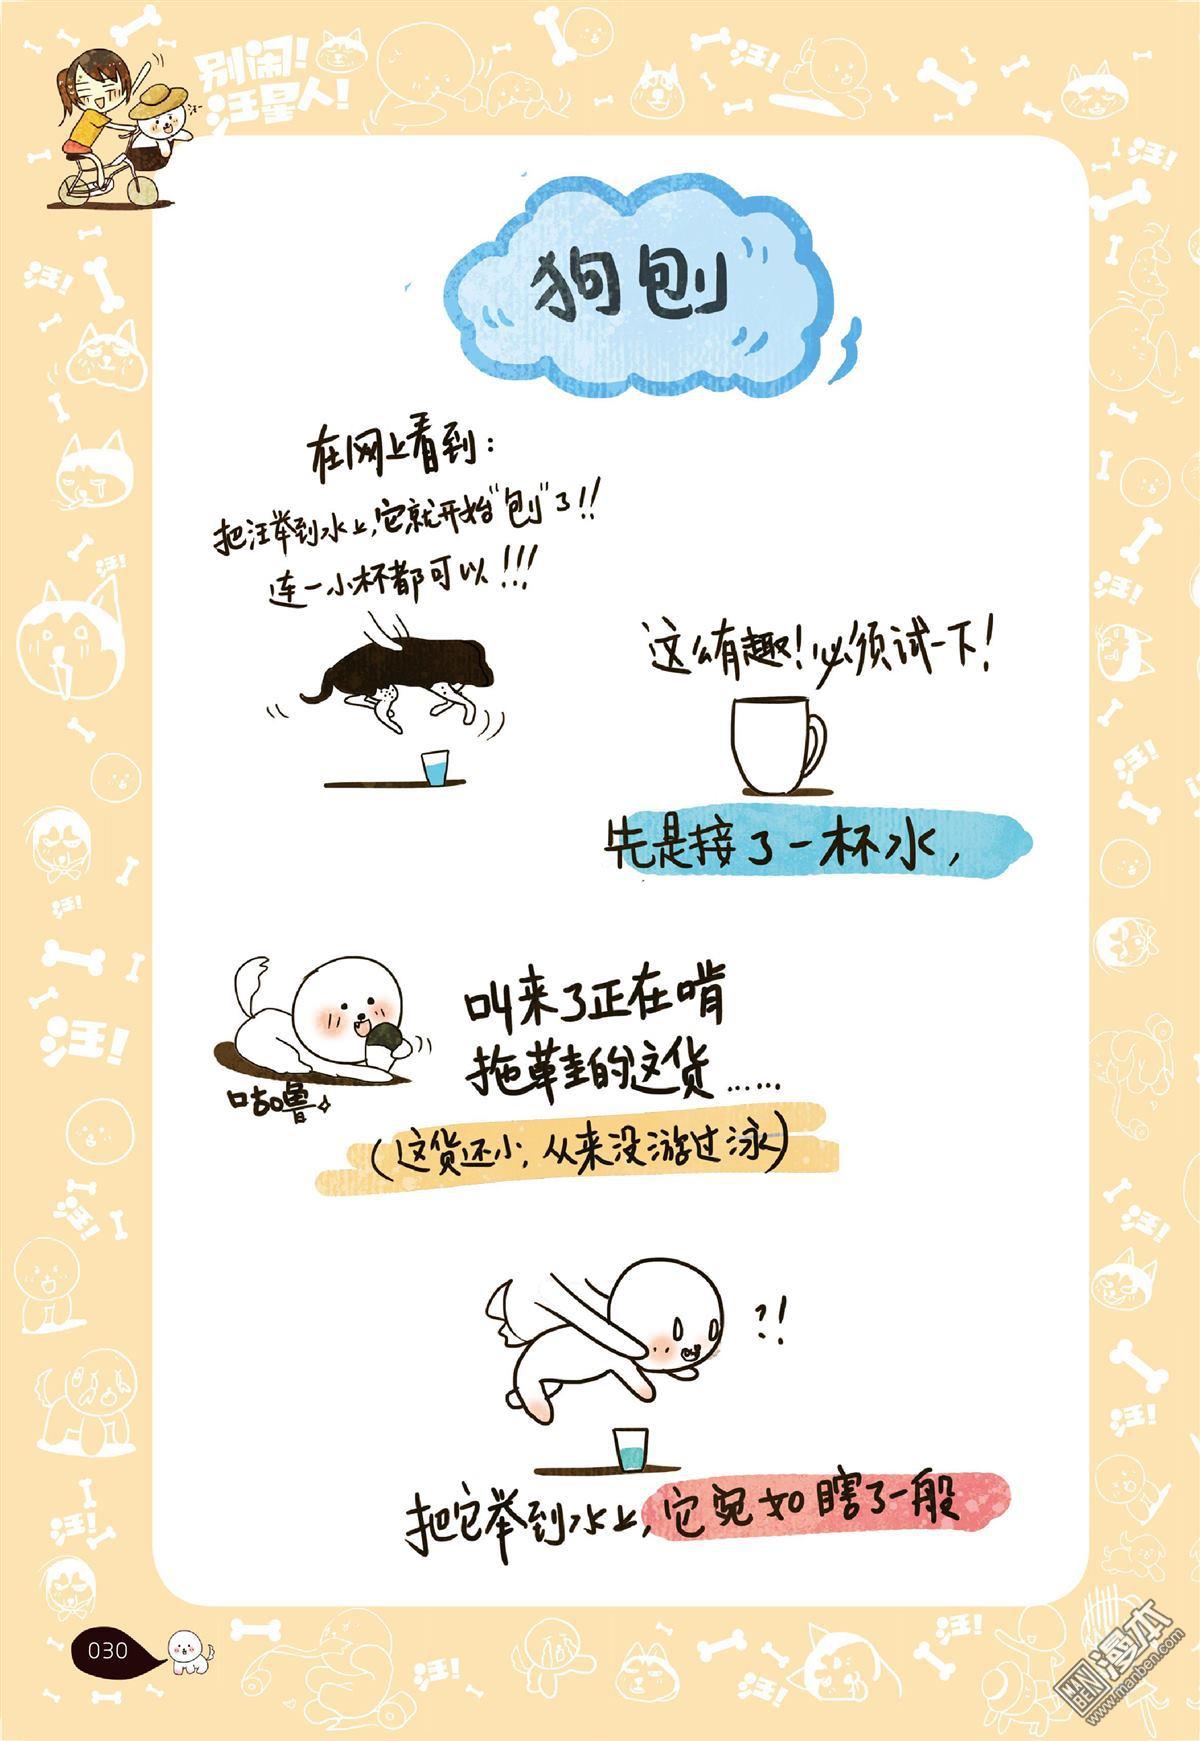 别闹!
汪星人!
狗刨
在网上看到:
把汪举到水上,它就开始"刨"了!!
连一小杯都可以!!!
这么有趣!必须试一下!
先是接了一杯水,
叫来了正在啃
拖鞋的这货……
咕噜
(这货还小,从来没游过泳)
?!
把它举到水上,它宛如瞎了一般
030
漫本
MANBEN
www.manben.com
汪!
汪!
汪!
汪!
汪!
汪!
汪!
汪!
汪!
汪!
汪!
汪!
汪!
汪!